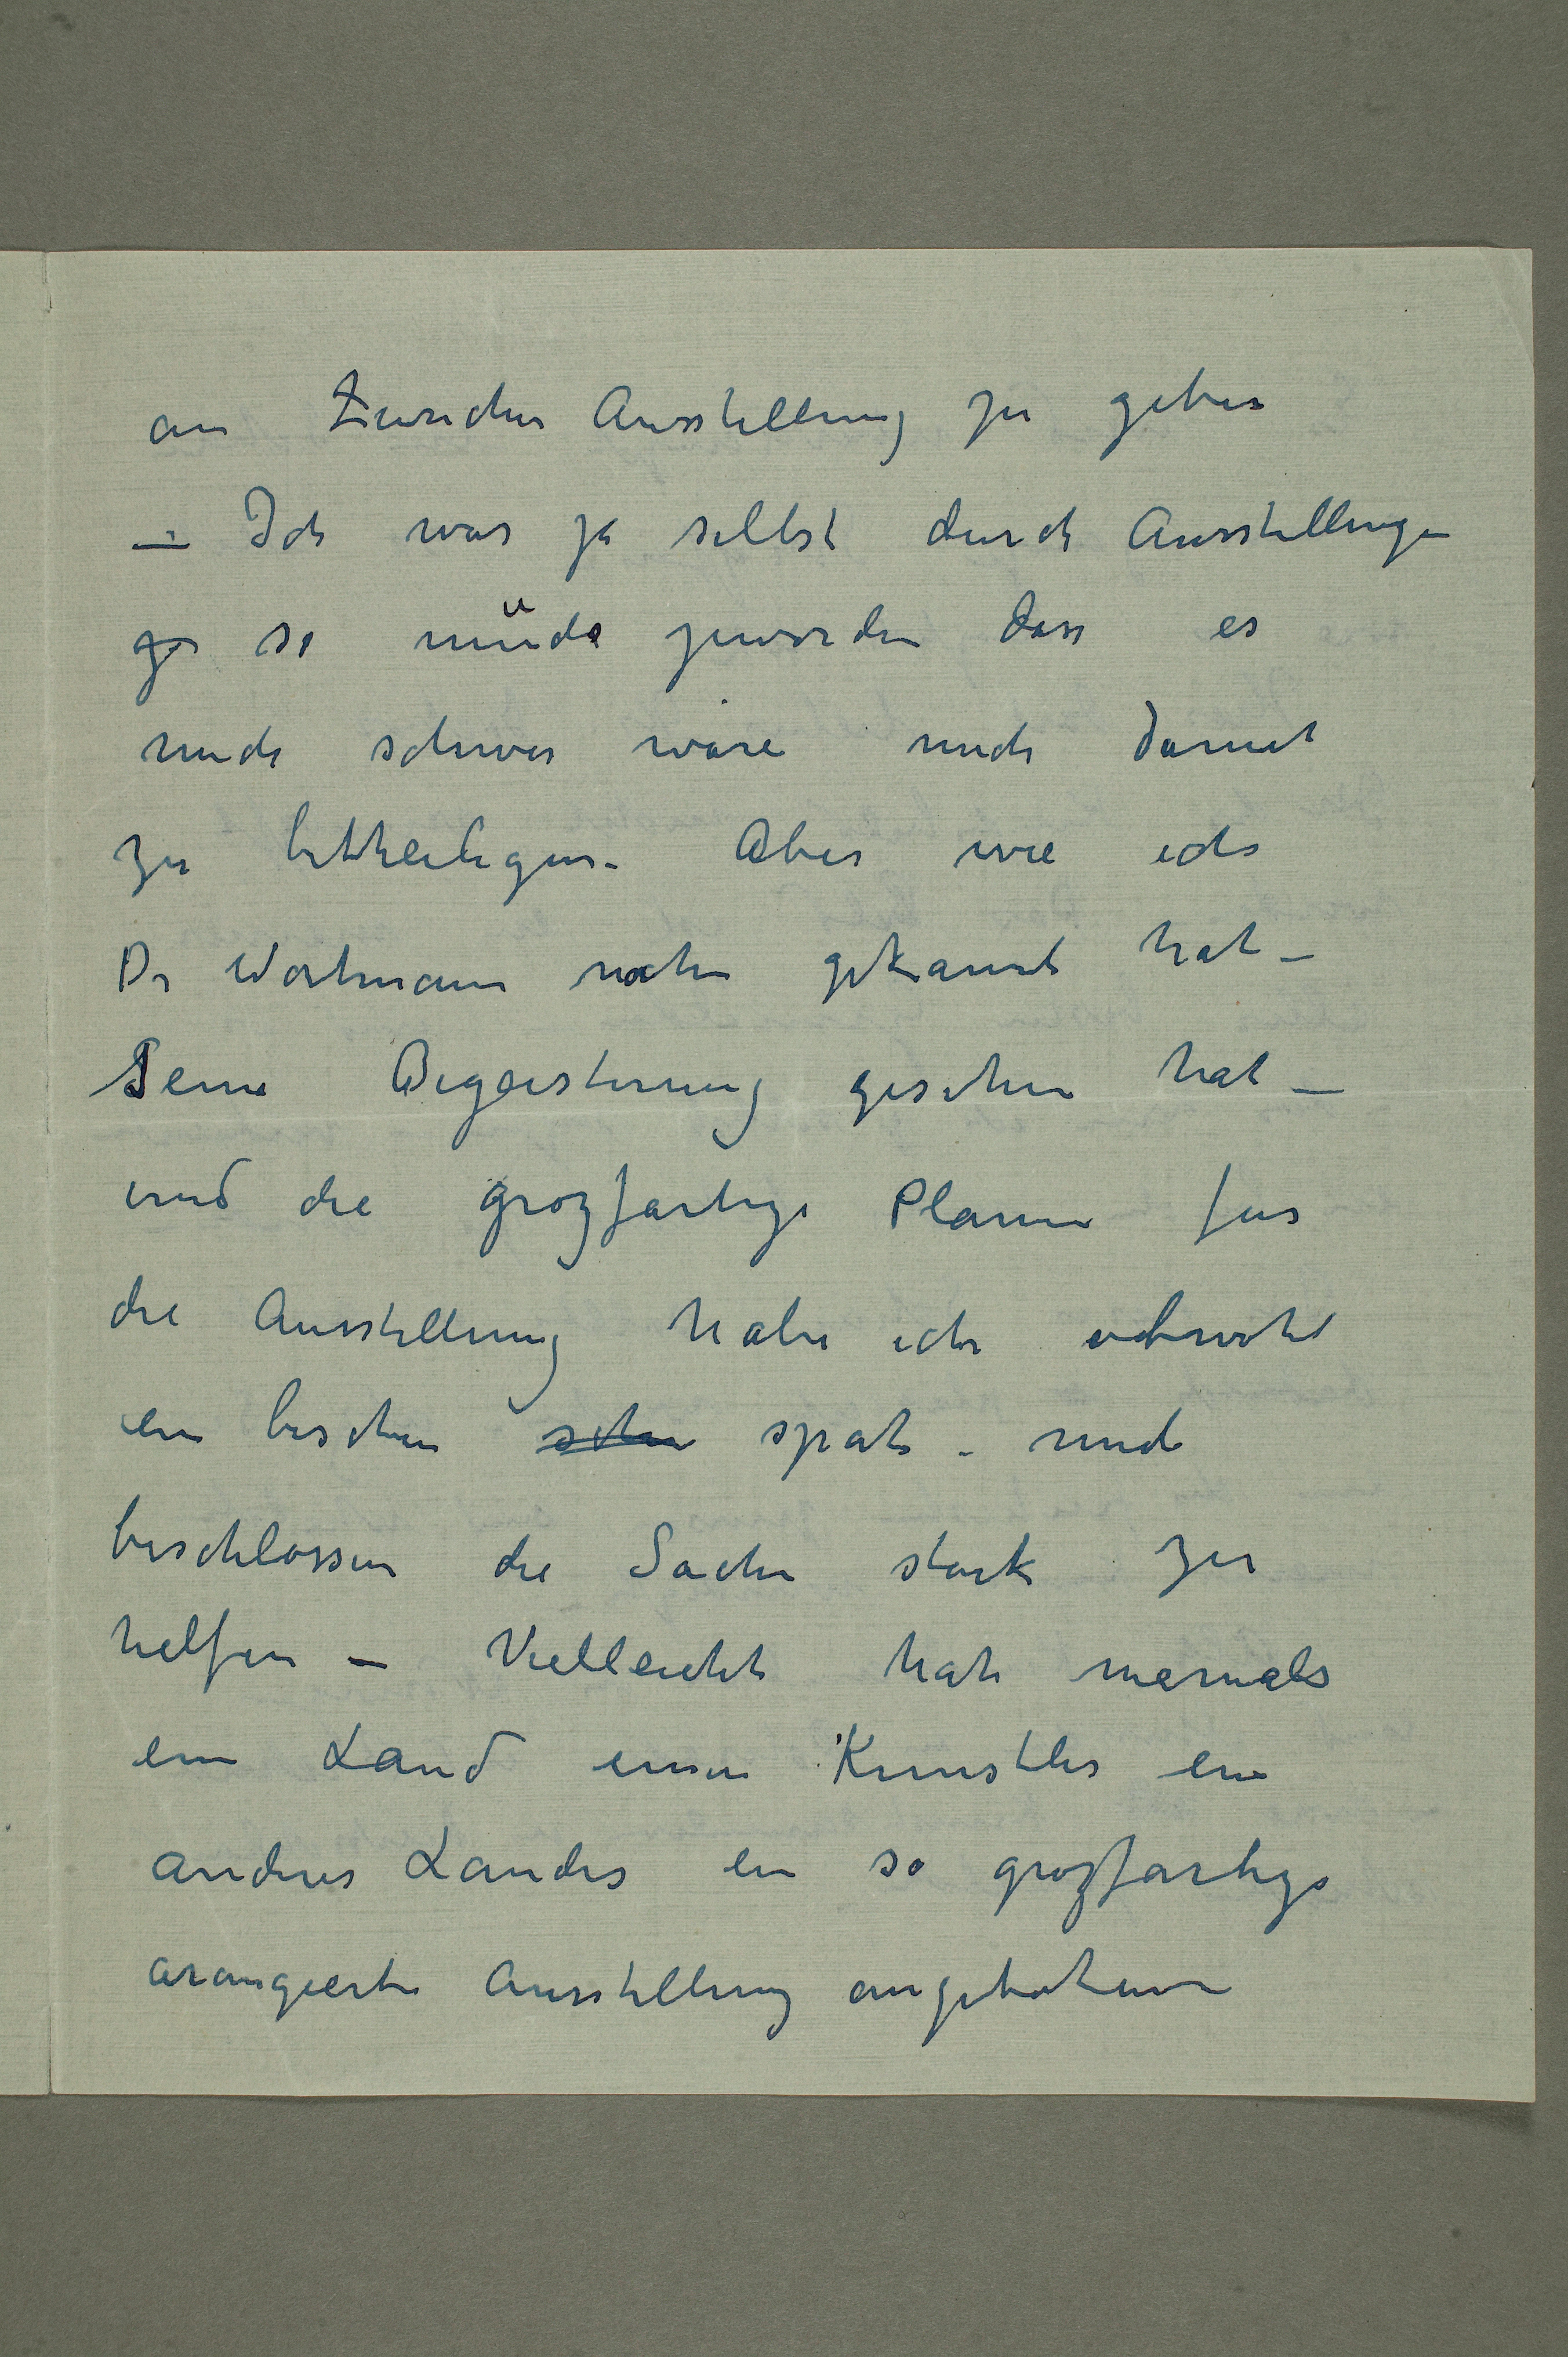 an Züricher Ausstellung zu geben
– Ich war ja selbst durch Ausstellungen
so müde geworden dass es
mich schwer wäre mich damit
zu bettheiligen – Aber wie ich
Dr Wartmann nacher gekannt hat –
Seine Begeisterung gesehen hat –
und die grozfartige Planne fur
die Ausstellung habe ich obwohl
ein bischen sehr spät – mich
beschlossen die Sache stark zu
helfen – Vielleicht hat niemals
ein Land einen Künstler ein
anderes Landes ein so grozfartige
arangierte Ausstellung angeboten